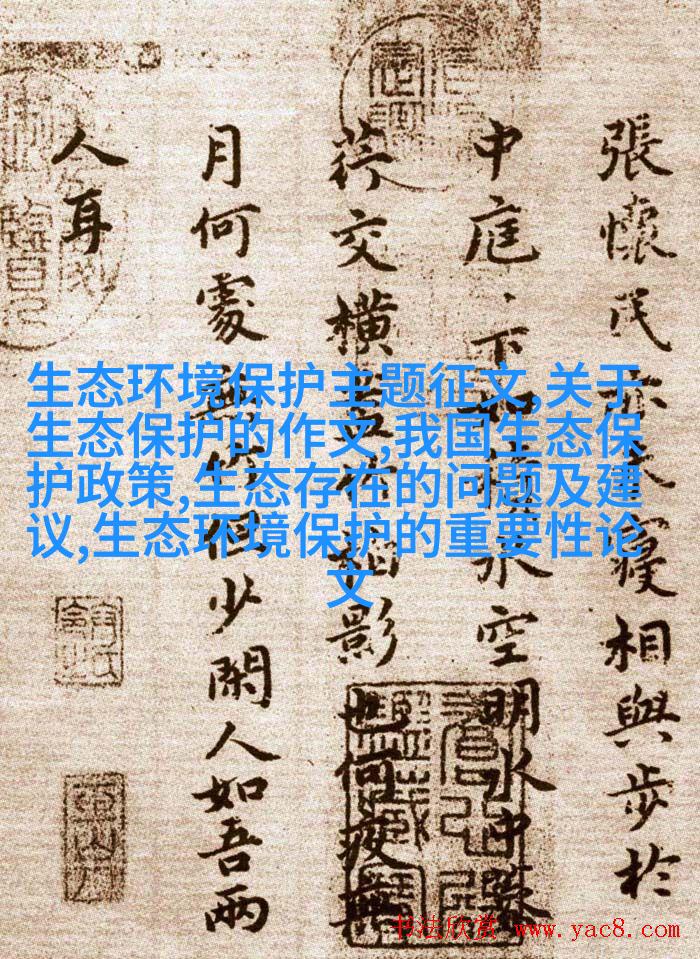 張懷民亦未寢相與步於
中庭、下如積水空明水中藻
荇交橫盖竹柏影也何夜無
月何處無竹但少閑人如吾兩
人耳
生态环境保护主题征文,关于
生态保护的作文,我国生态保
护政策,生态存在的问题及建
议,生态环境保护的重要性论
文
书法欣赏 www.yac8.com